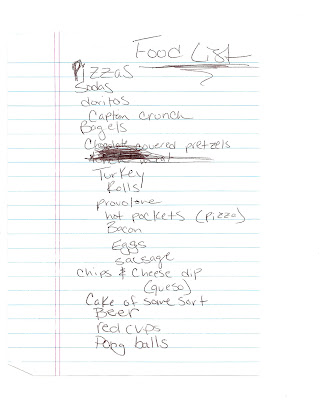 Food List
Pizzas
Sodas
doritos
Captan crunch
Bagels
Chocolate covered pretzels
Turkey
Rolls
provolone
hot pockets (pizza)
Bacon
Eggs
sausage
Chips & Cheese dip
(queso)
Cake of some sort
Beer
red cups
Pong balls